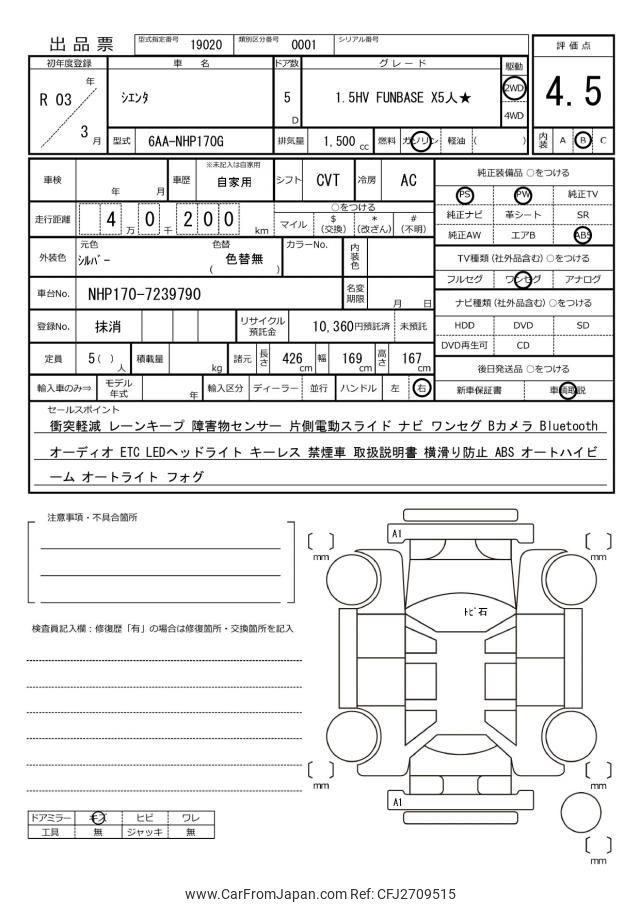 出品票
型式指定番号 19020 類別区分番号 0001 シリアル番号
初年度登録 車名 ドア数 グレード 駆動
R 03 年 3 月
シエンタ
5 D
1.5HV FUNBASE X5人★
2WD
4WD
型式 6AA-NHP170G 排気量 1,500 cc 燃料 ガソリン 軽油 ( )
評価点
4.5
内装 A B C
車検 年 月 車歴 ※未記入は自家用 自家用 シフト CVT 冷房 AC
走行距離 4 万 0 千 2 0 0 km
○をつける
マイル $ (交換) * (改ざん) # (不明)
外装色 元色 シルバー 色替 ( 色替無 ) カラーNo. 内装色
車台No. NHP170-7239790 名変期限 月 日
登録No. 抹消 リサイクル預託金 10,360円預託済 未預託
定員 5 ( ) 人 積載量 kg 諸元 長さ 426 cm 幅 169 cm 高さ 167 cm
輸入車のみ⇒ モデル年式 年 輸入区分 ディーラー 並行 ハンドル 左 右
純正装備品 ○をつける
PS PW 純正TV
純正ナビ 革シート SR
純正AW エアB ABS
TV種類 (社外品含む) ○をつける
フルセグ ワンセグ アナログ
ナビ種類 (社外品含む) ○をつける
HDD DVD SD
DVD再生可 CD
後日発送品 ○をつける
新車保証書 車輌取説
セールスポイント
衝突軽減 レーンキープ 障害物センサー 片側電動スライド ナビ ワンセグ Bカメラ Bluetooth
オーディオ ETC LEDヘッドライト キーレス 禁煙車 取扱説明書 横滑り防止 ABS オートハイビ
ーム オートライト フォグ
注意事項・不具合箇所
検査員記入欄：修復歴「有」の場合は修復箇所・交換箇所を記入
ドアミラー キズ ヒビ ワレ
工具 無 ジャッキ 無
A1
mm
mm
トビ石
mm
mm
A1
mm
www.CarFromJapan.com Ref: CFJ2709515